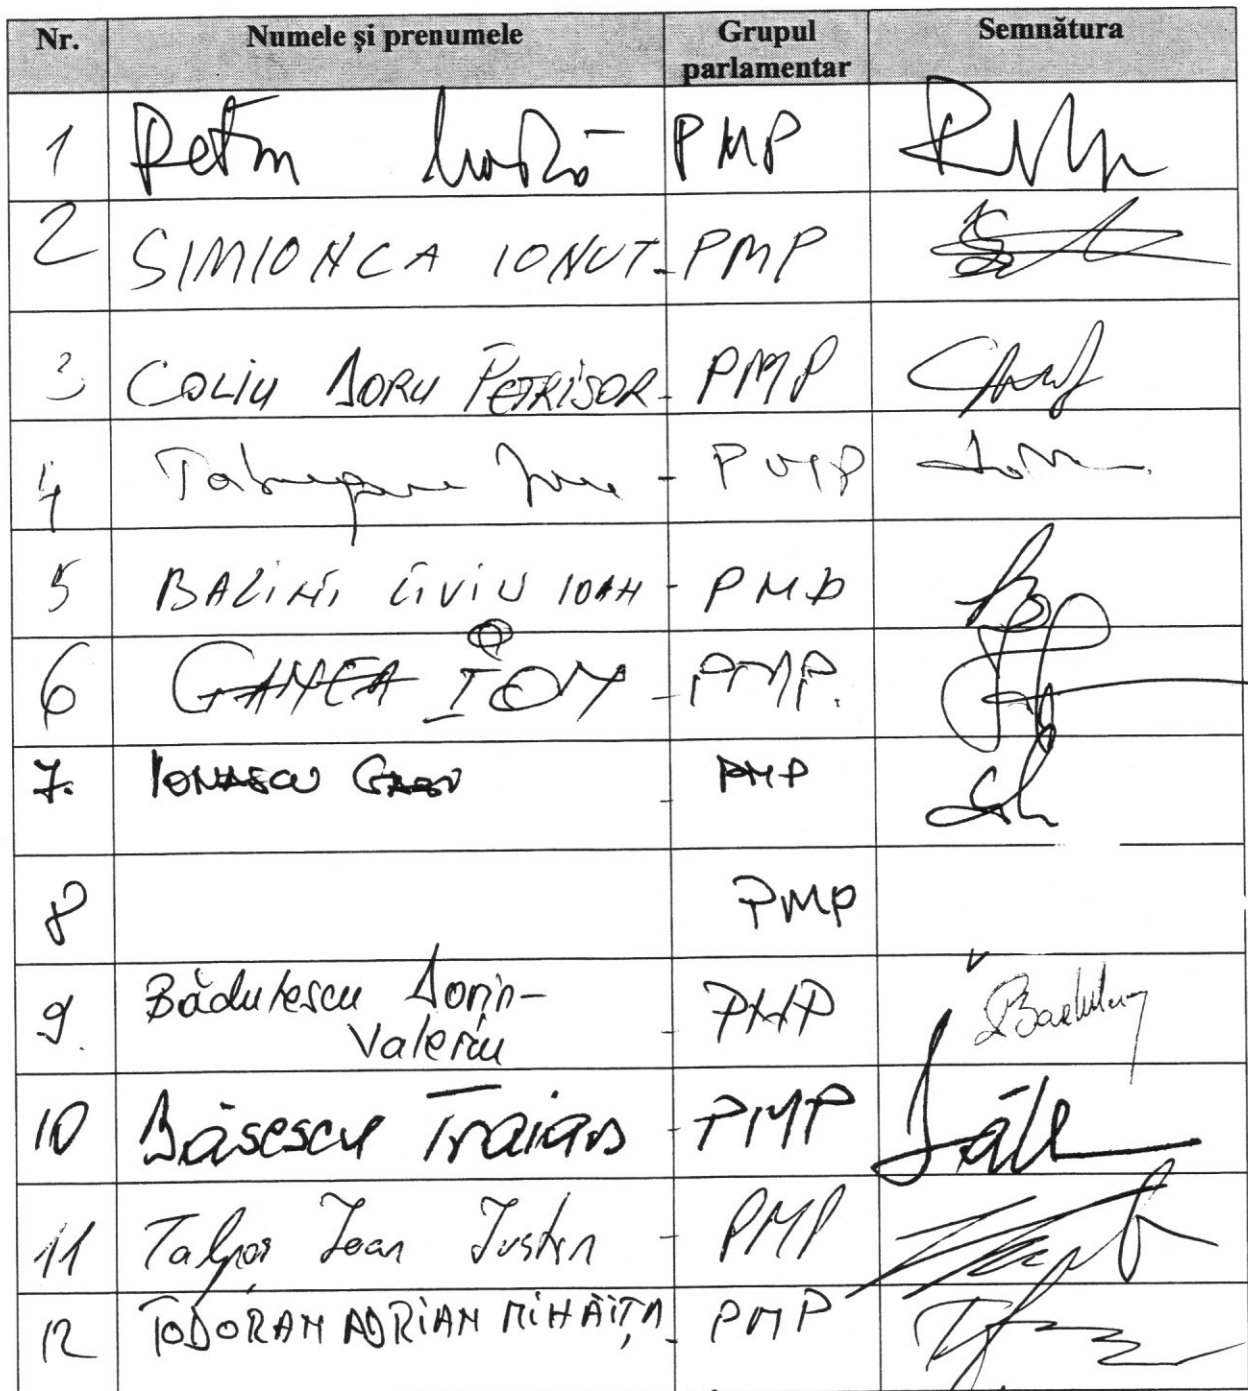 Nr. Numele și prenumele Grupul parlamentar Semnătura
1 Petru PMP
2 SIMIONCA IONUT - PMP
3 COLIU DORU PETRISOR - PMP
4 - PMP
5 BALINT LIVIU IOAN - PMP
6 GANEA ION - PMP.
7. IONASCU - PMP
8 PMP
9. Bădulescu Dorin-
Valeriu - PMP
10 Băsescu Traian - PMP
11 Talpoș Ioan Iustin - PMP
12 TODORAN ADRIAN MIHĂIȚĂ - PMP